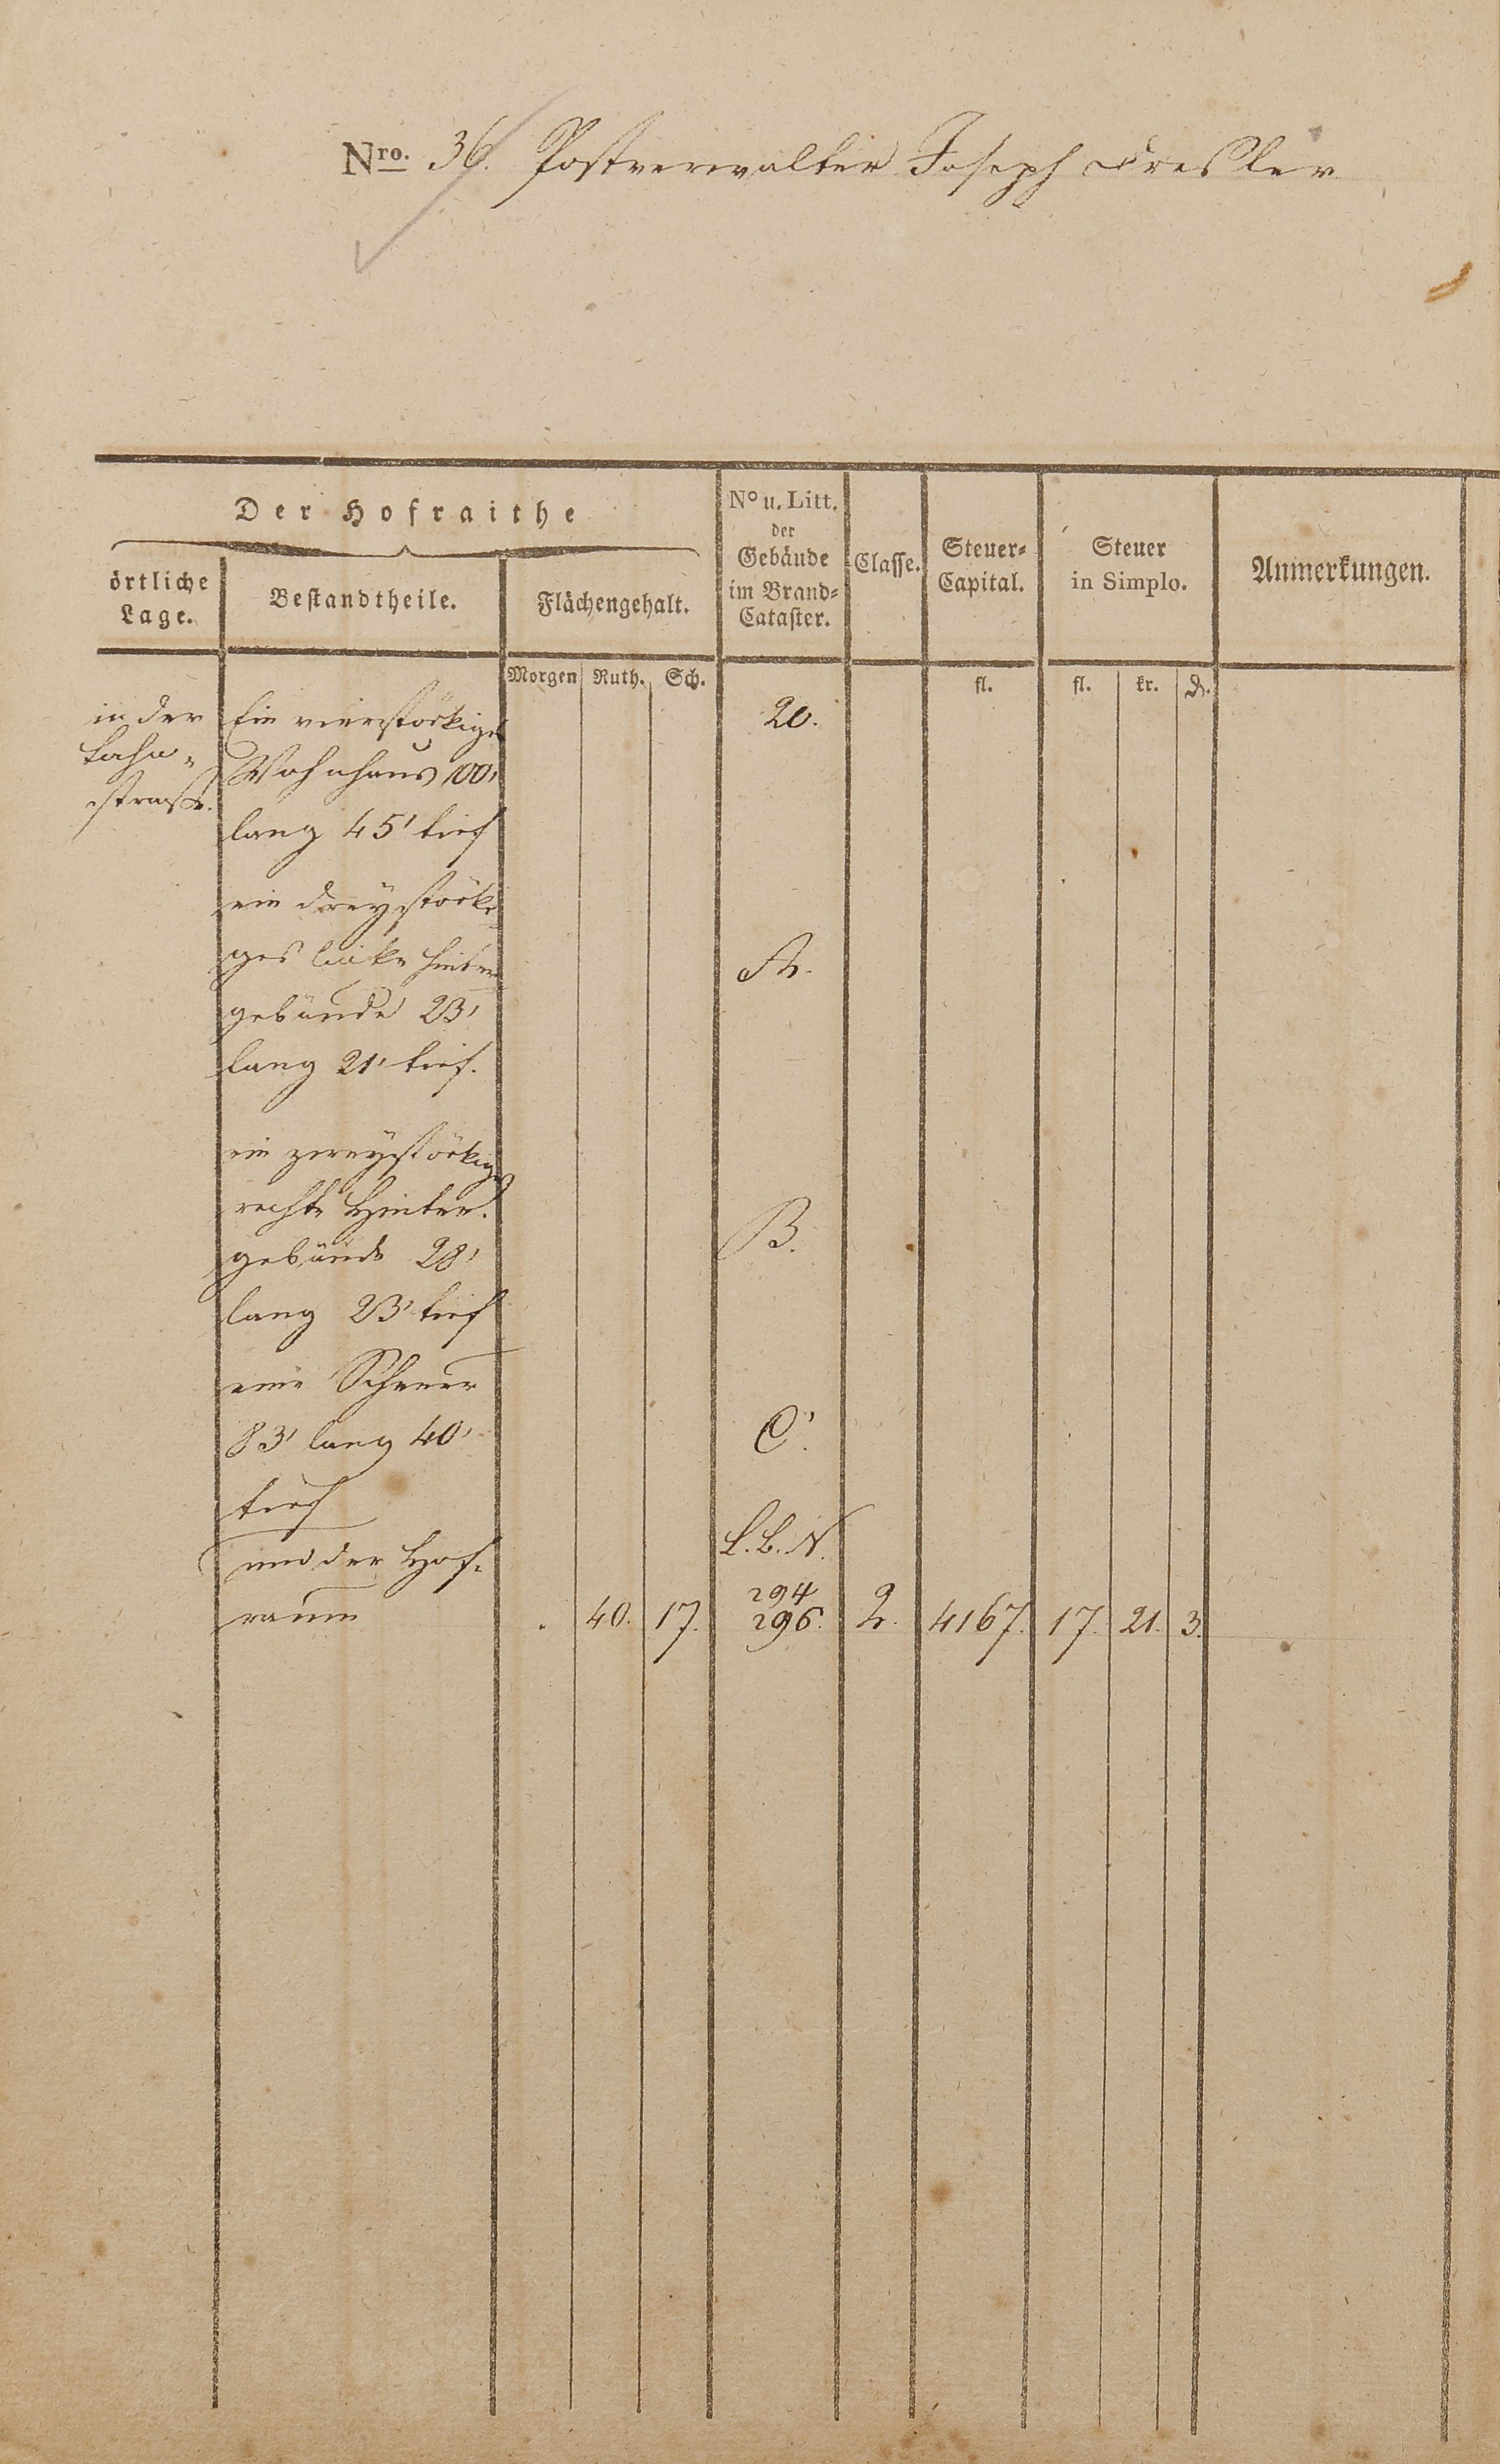 Nro. 36. Postverwalter Joseph Dresler
Der Hofraithe
örtliche
Lage.
Bestandtheile.
Flächengehalt.
No u. Litt.
der
Gebäude
im Brand-
Cataster.
Classe.
Steuer-
Capital.
Steuer
in Simplo.
Anmerkungen.
Morgen Ruth. Sch.
fl. fl. kr. d.
in der
Lahn-
straße.
Ein vierstöckiges
Wohnhaus 100'
lang 45' tief
20.
ein dreystöcki-
ges linke Hinter-
gebäude 23'
lang 21' tief.
A.
ein zweystöckiges
rechte Hinter-
gebäude 28'
lang 23' tief
B.
eine Scheuer
83' lang 40'
tief
C.
und der Hof-
raum
L. B. N.
294
. 40. 17. 296. 2. 4167. 17. 21. 3.